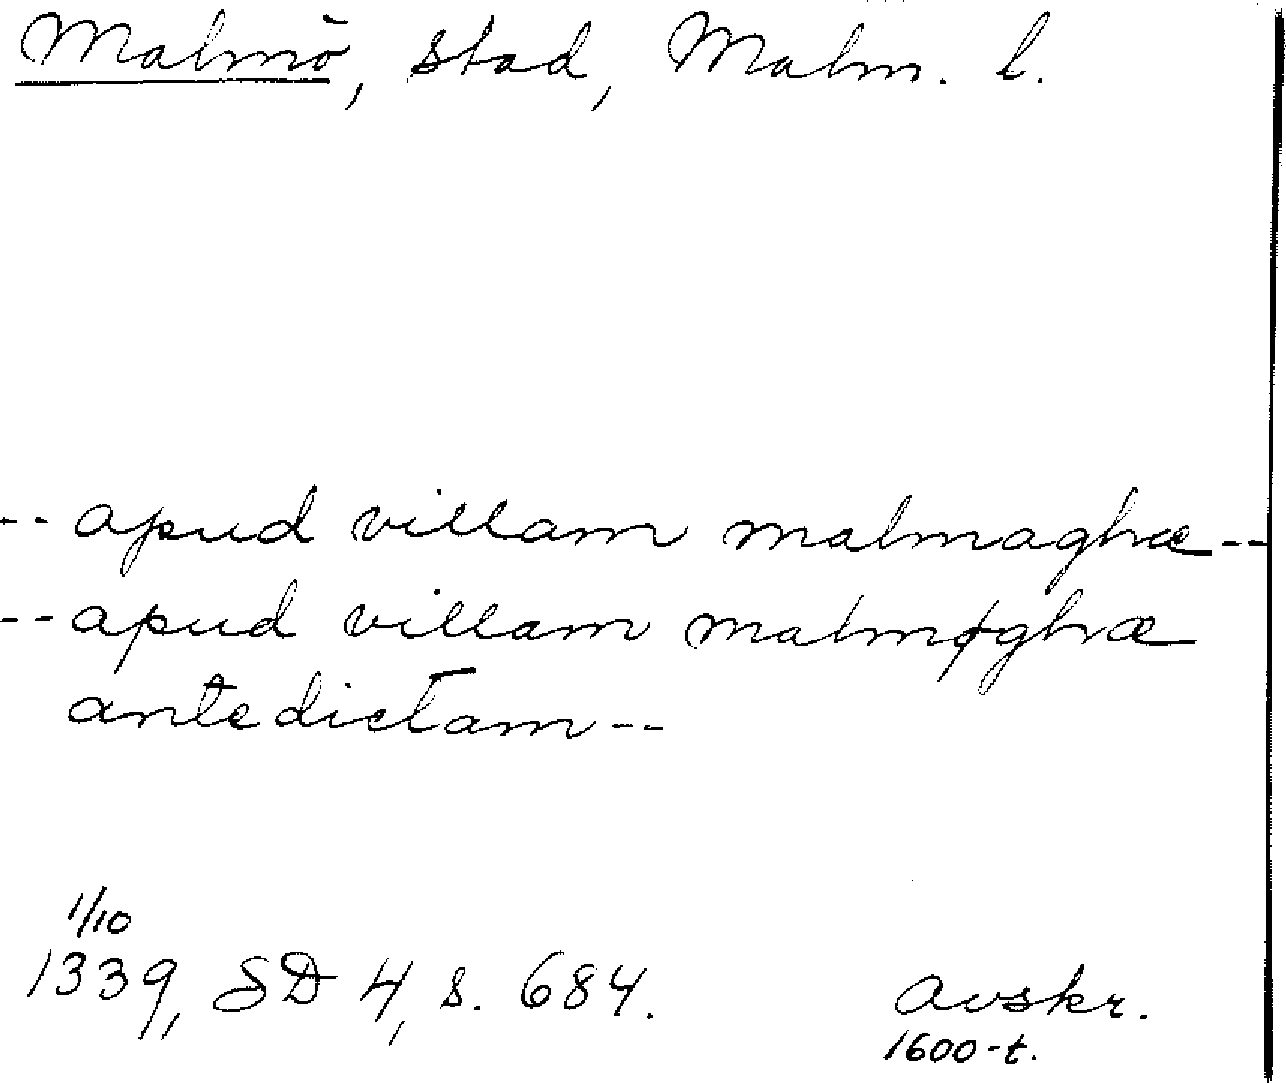 Malmö, stad, Malm. l.
-- apud villam malmaghæ --
-- apud villam malmøghæ
antedictam --
1/10
1339, SD 4, s. 684. Avskr.
1600-t.